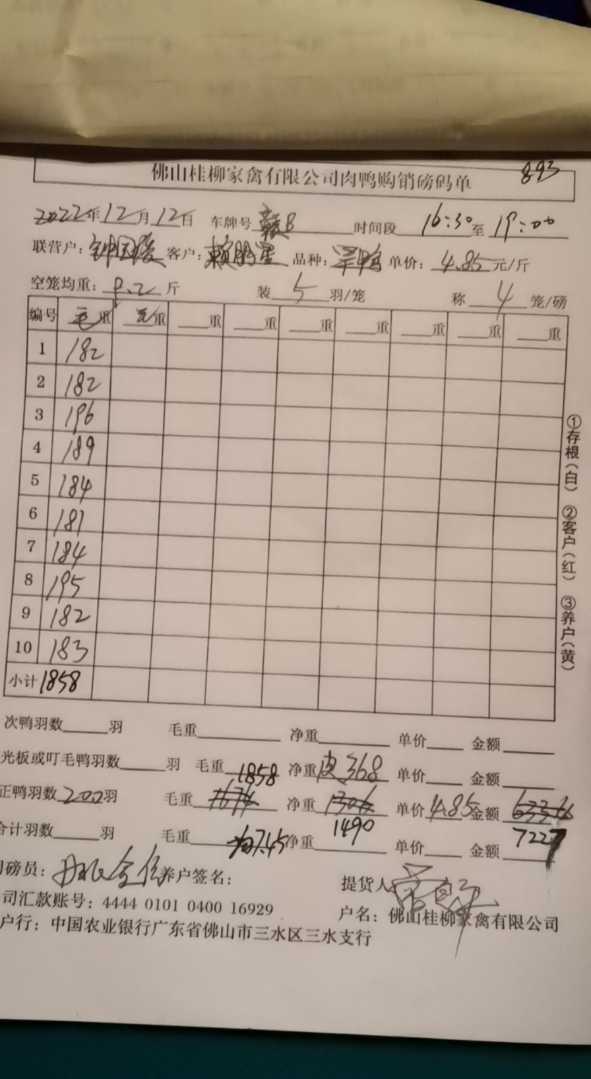 佛山桂柳家禽有限公司肉鸭购销磅码单 893
2022年12月12日 车牌号 赣B 时间段 16:30至 19:00
联营户: 客户: 品种: 单价: 4.85元/斤
空笼均重: 9.2斤 装 5 羽/笼 称 4 笼/磅
编号 毛重 重 重 重 重 重 重 重 重
1 182
2 182
3 196
4 189
5 184
6 181
7 184
8 195
9 182
10 183
小计 1858
①存根(白) ②客户(红) ③养户(黄)
次鸭羽数 羽 毛重 净重 单价 金额
光板或叮毛鸭羽数 羽 毛重 1858 净重 皮368 单价 金额
正鸭羽数 200羽 毛重 净重 1306 单价 4.85 金额
合计羽数 羽 毛重 7.45 净重 1490 单价 金额 7227
司磅员: 养户签名: 提货人
司汇款账号: 4444 0101 0400 16929 户名: 佛山桂柳家禽有限公司
户行: 中国农业银行广东省佛山市三水区三水支行